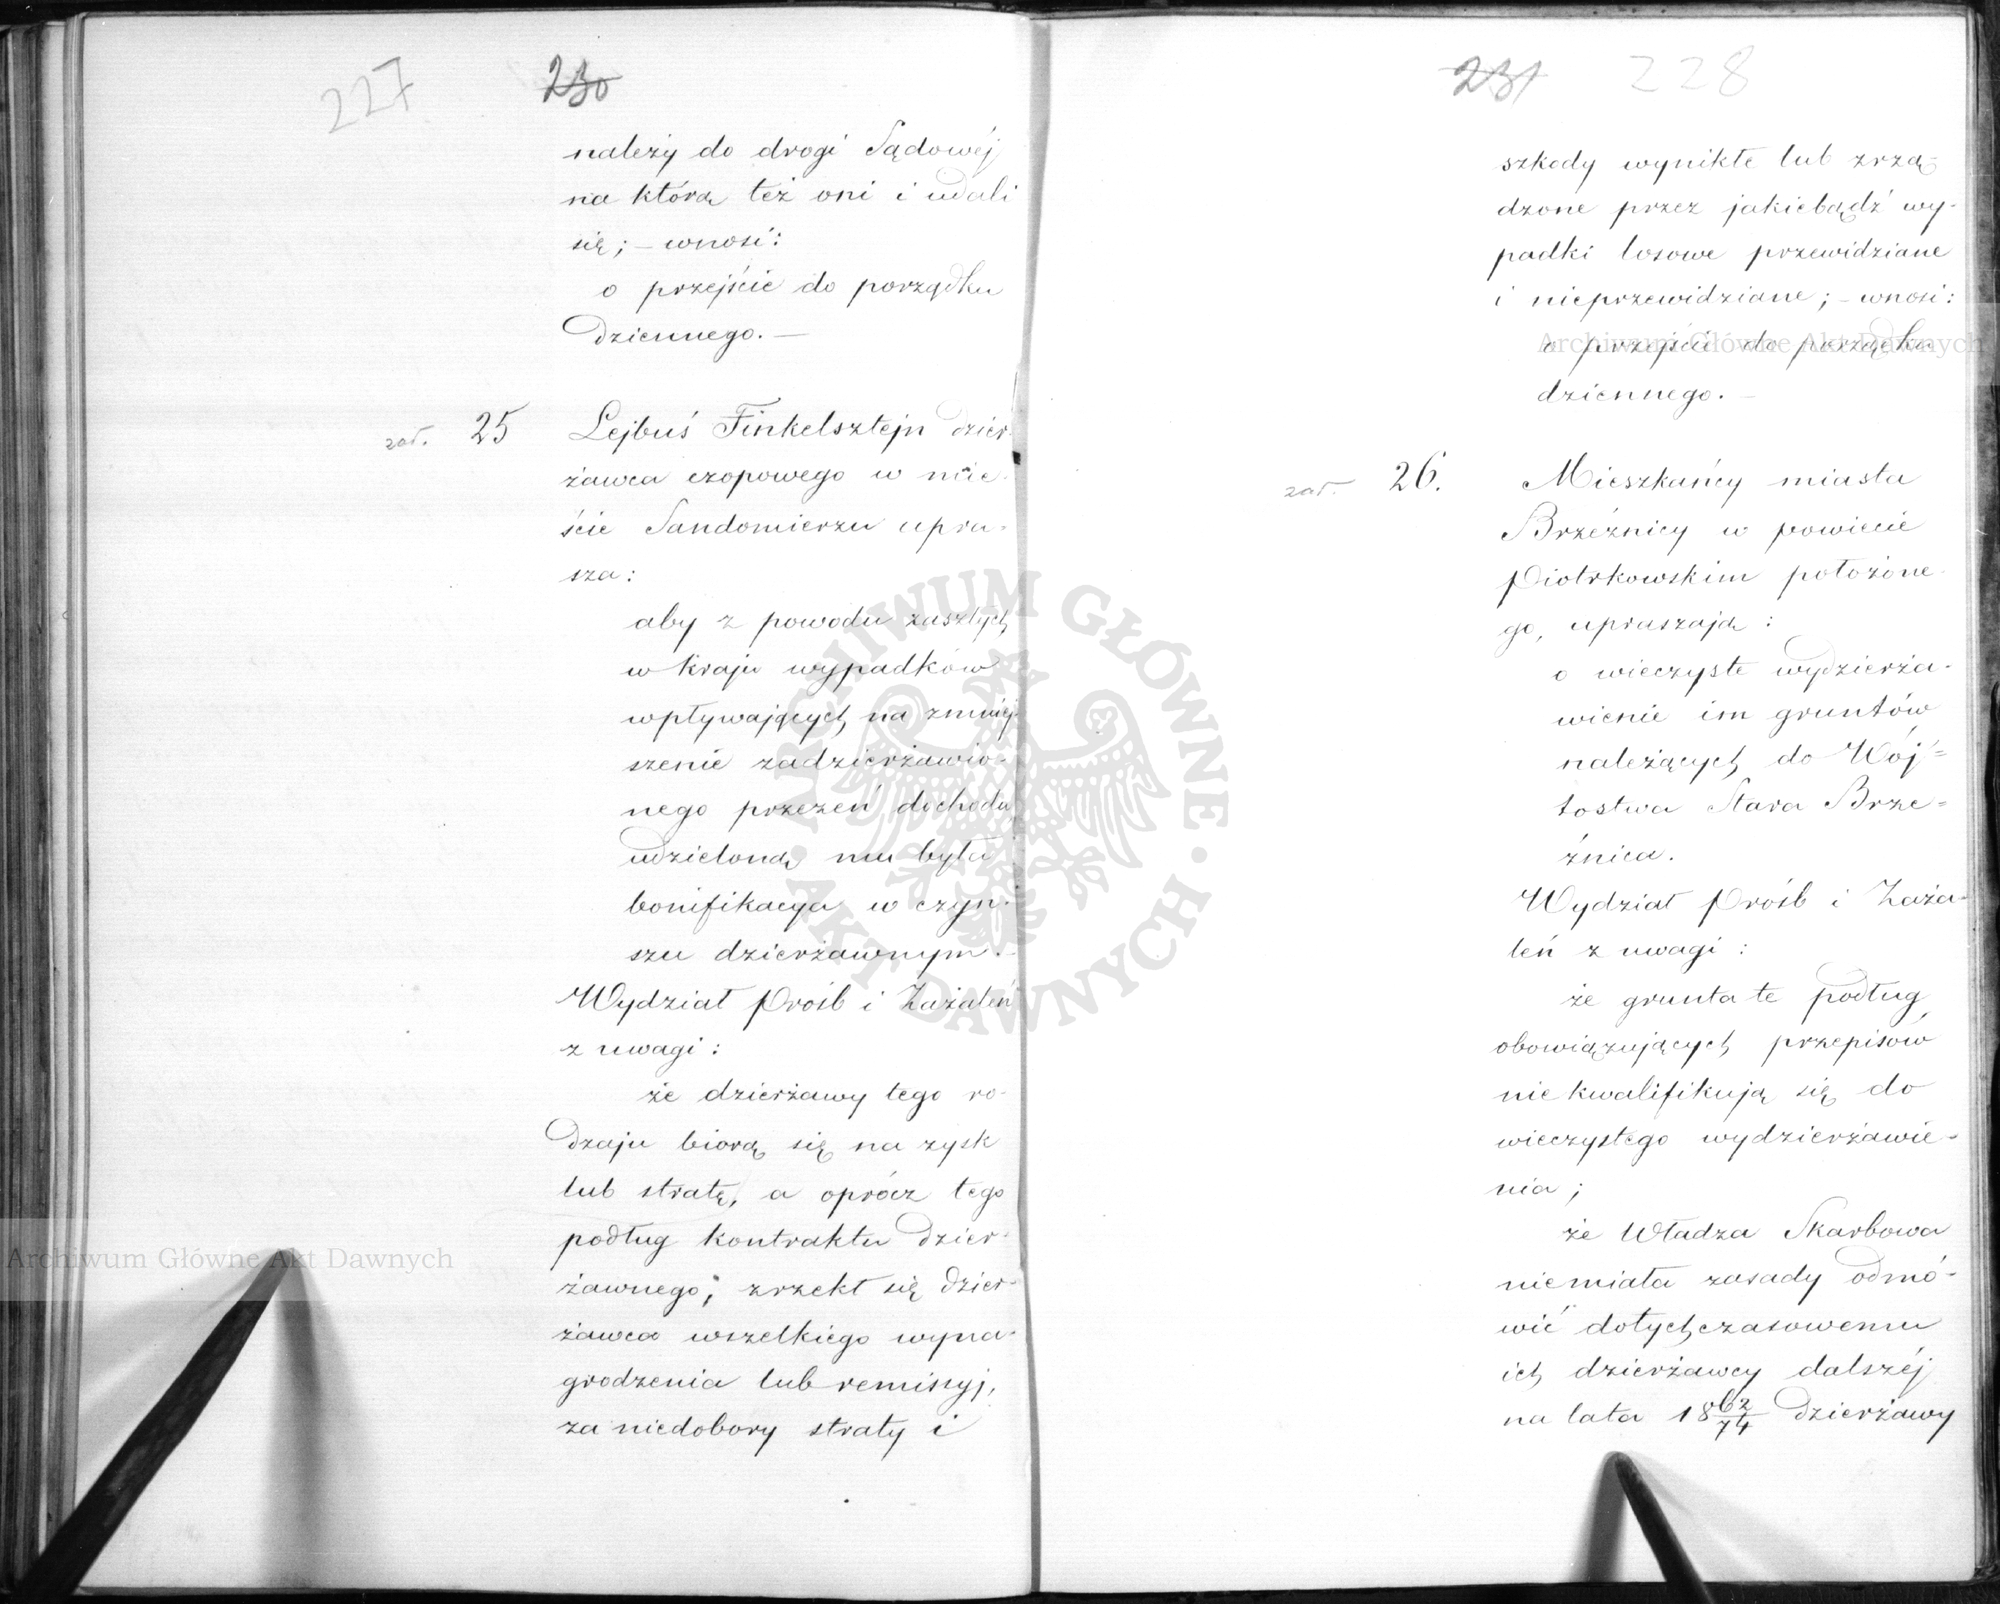 227 230
należy do drogi Sądowéj
na którą też oni i udali
się; – wnosi:
o przejście do porządku
dziennego. —
zał. 25 Lejbuś Finkelsztejn dzier-
żawca czopowego w mie-
ście Sandomierzu upra-
sza:
aby z powodu zaszłych
w kraju wypadków
wpływających na zmniej-
szenie zadzierżawio-
nego przezeń dochodu,
udzieloną mu była
bonifikacya w czyn-
szu dzierżawnym. –
Wydział Próśb i Zażaleń
z uwagi:
że dzierżawy tego ro-
dzaju biorą się na zysk
lub stratę, a oprócz tego
podług kontraktu dzier-
żawnego; zrzekł się dzier-
żawca wszelkiego wyna-
grodzenia lub remissyj,
za niedobory straty i
231 228
szkody wynikłe lub zrzą-
dzone przez jakiebądź wy-
padki losowe przewidziane
i nieprzewidziane; – wnosi:
o przejście do porządku
dziennego. –
zał. 26. Mieszkańcy miasta
Brzeźnicy w powiecie
Piotrkowskim położone-
go, upraszają:
o wieczyste wydzierża-
wienie im gruntów
należących do Wój=
tostwa Stara Brze=
źnica.
Wydział Próśb i Zaża-
leń z uwagi:
że grunta te podług
obowiązujących przepisów
nie kwalifikują się do
wieczystego wydzierżawie-
nia;
że Władza Skarbowa
niemiała zasady odmó-
wić dotychczasowemu
ich dzierżawcy dalszéj
na lata 1862/74 dzierżawy
Archiwum Główne Akt Dawnych
Archiwum Główne Akt Dawnych
ARCHIWUM GŁÓWNE · AKT DAWNYCH ·